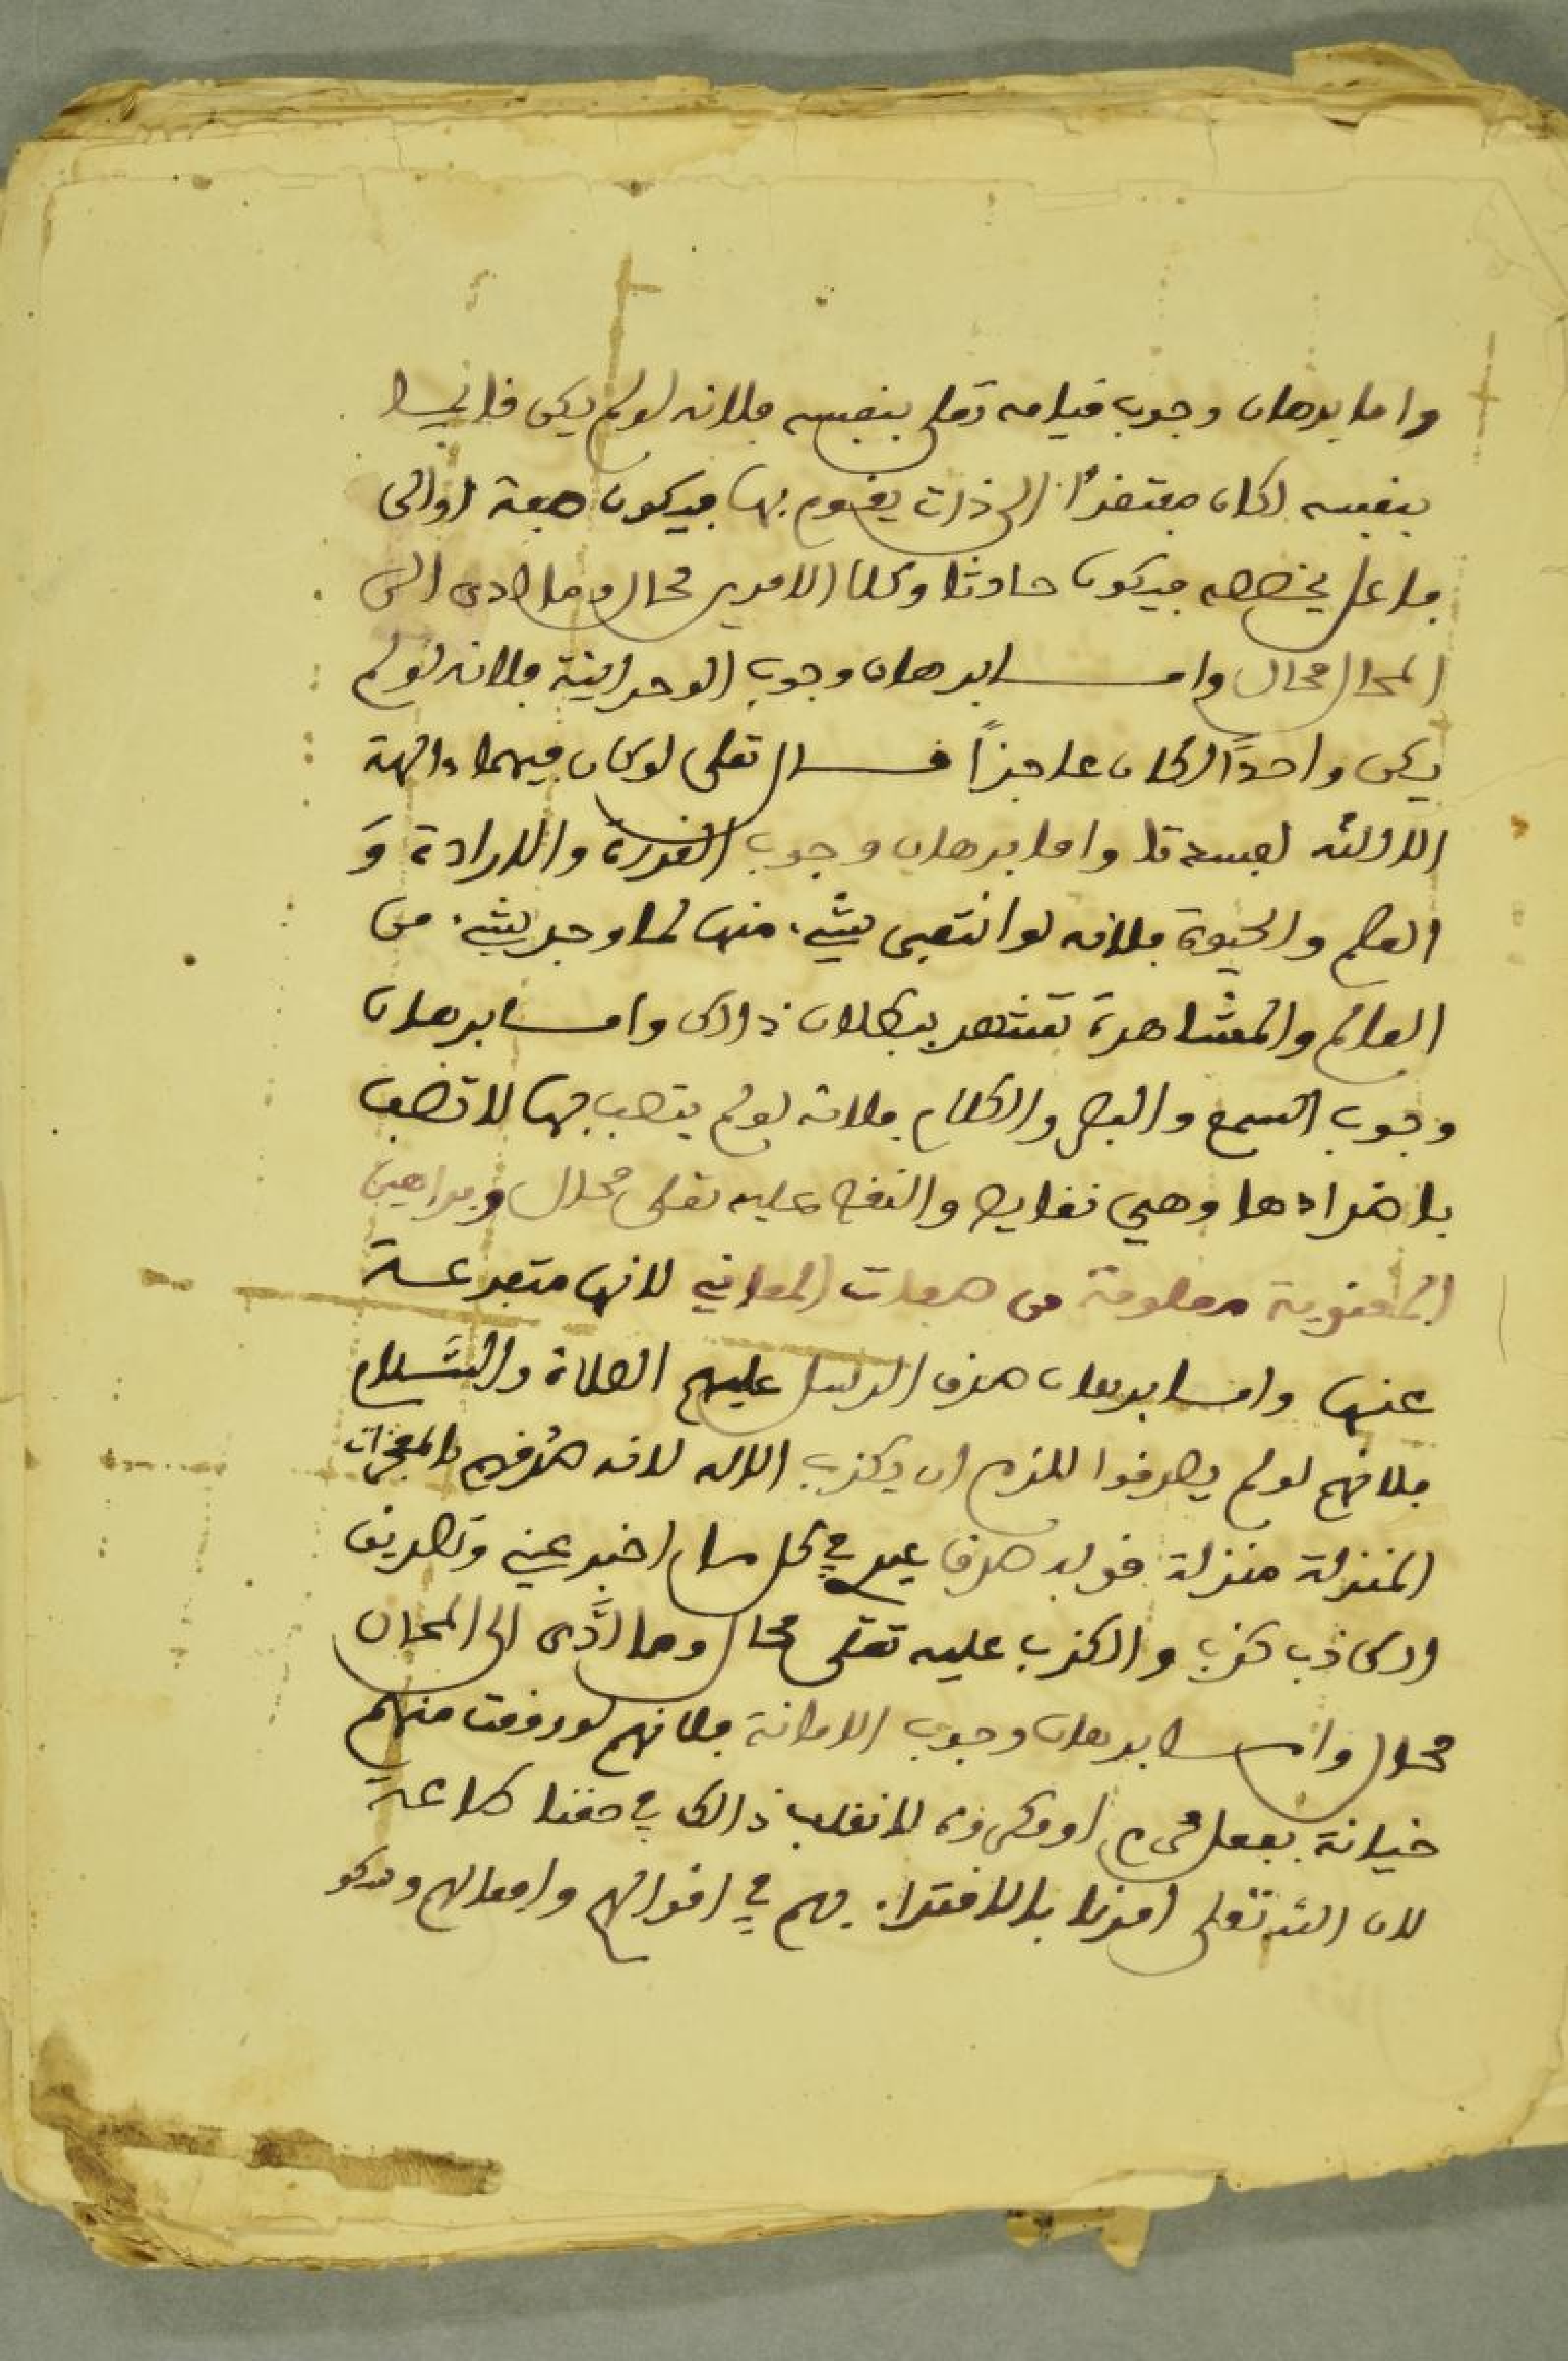 واما برهان وجوب قيامه تعلى بنفسه فلانه لو لم يكن قايما
بنفسه لكان مفتقرًا الى ذات يقوم بها فيكون صفة او الى
فاعل يخصصه فيكون حادثا وكلا الامرين محال وما ادى الى
المحال محال وامــا برهان وجوب الوحدانية فلانه لو لم
يكن واحدًا لكان عاجزًا قــال تعلى لو كان فيهما ءالهة
الا الله لفسدتا واما برهان وجوب القدرة والارادة وَ
العلم والحيوة فلانه لو انتفى شيء منها لما وجد شيء من
العالم والمشاهدة تشهد ببطلان ذالك وامــا برهان
وجوب السمع والبصر والكلام فلانه لو لم يتصف بها لاتصف
باضدادها وهي نقايص والنقص عليه تعلى محال وبراهين
المعنوية معلومة من صفات المعاني لانها متفرعــة
عنها وامــا برهان صدق الرسل عليهم الصلاة والسَّلام
فلانهم لو لم يصدقوا للزم ان يكذب الاله لانه صدقهم بالمعجزات
المنزلة منزلة قوله صدق عبدي في كل ما اخبر عني وتصديق
الكاذب كذب والكذب عليه تعلى محال وما ادَّى الى المحال
محال وامــا برهان وجوب الامانة فلانهم لو وقعت منهم
خيانة بفعل محرم او مكروه لانقلب ذالك في حقنا طاعة
لان الله تعلى امرنا بالاقتداء بهم في اقوالهم وافعالهم